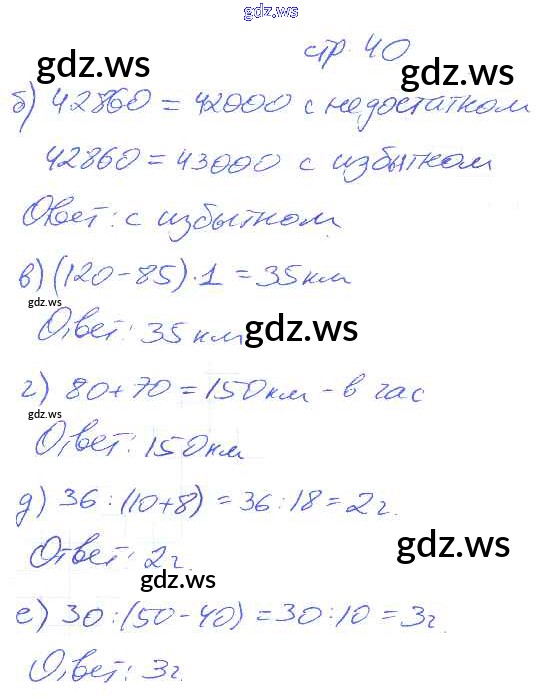 gdz.ws
стр. 40
gdz.ws
б) 42860 = 42000 с недостатком
42860 = 43000 с избытком
Ответ: с избытком
в) (120-85)·1 = 35 км
gdz.ws
Ответ: 35 км
gdz.ws
г) 80+70 = 150 км - в час
gdz.ws
Ответ: 150 км
д) 36 : (10+8) = 36 : 18 = 2г.
Ответ: 2г.
gdz.ws
gdz.ws
е) 30 : (50-40) = 30 : 10 = 3г.
Ответ: 3г.